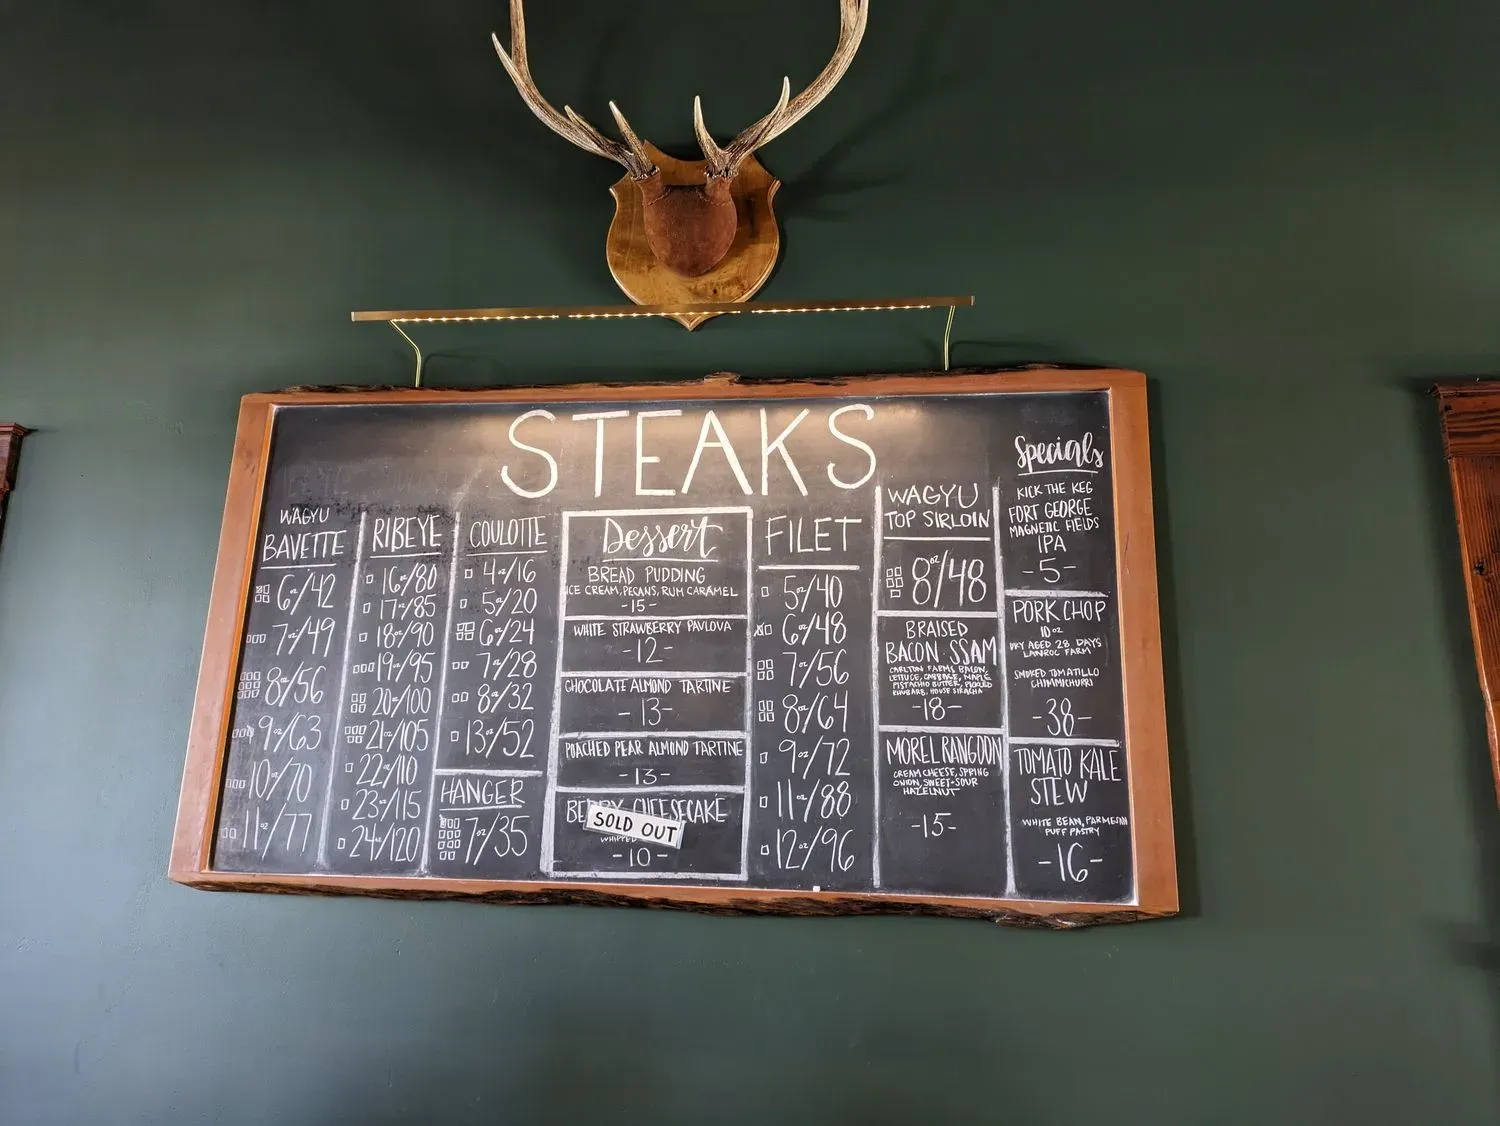 STEAKS
WAGYU
BAVETTE
6oz/42
7oz/49
8oz/56
9oz/63
10oz/70
11oz/77
RIBEYE
16oz/80
17oz/85
18oz/90
19oz/95
20oz/100
21oz/105
22oz/110
23oz/115
24oz/120
COULOTTE
4oz/16
5oz/20
6oz/24
7oz/28
8oz/32
13oz/52
HANGER
7oz/35
Dessert
BREAD PUDDING
ICE CREAM, PECANS, RUM CARAMEL
-15-
WHITE STRAWBERRY PAVLOVA
-12-
CHOCOLATE ALMOND TARTINE
-13-
POACHED PEAR ALMOND TARTINE
-13-
BERRY CHEESECAKE
SOLD OUT
WHIPPED
-10-
FILET
5oz/40
6oz/48
7oz/56
8oz/64
9oz/72
11oz/88
12oz/96
WAGYU
TOP SIRLOIN
8oz/48
BRAISED
BACON SSAM
CARLTON FARMS BACON,
LETTUCE, CABBAGE, MAPLE
PISTACHIO BUTTER, PICKLED
RHUBARB, HOUSE SIRACHA
-18-
MOREL RANGOON
CREAM CHEESE, SPRING
ONION, SWEET+SOUR
HAZELNUT
-15-
Specials
KICK THE KEG
FORT GEORGE
MAGNETIC FIELDS
IPA
-5-
PORK CHOP
10oz
DRY AGED 28 DAYS
LANROC FARM
SMOKED TOMATILLO
CHIMMICHURRI
-38-
TOMATO KALE
STEW
WHITE BEAN, PARMESAN
PUFF PASTRY
-16-